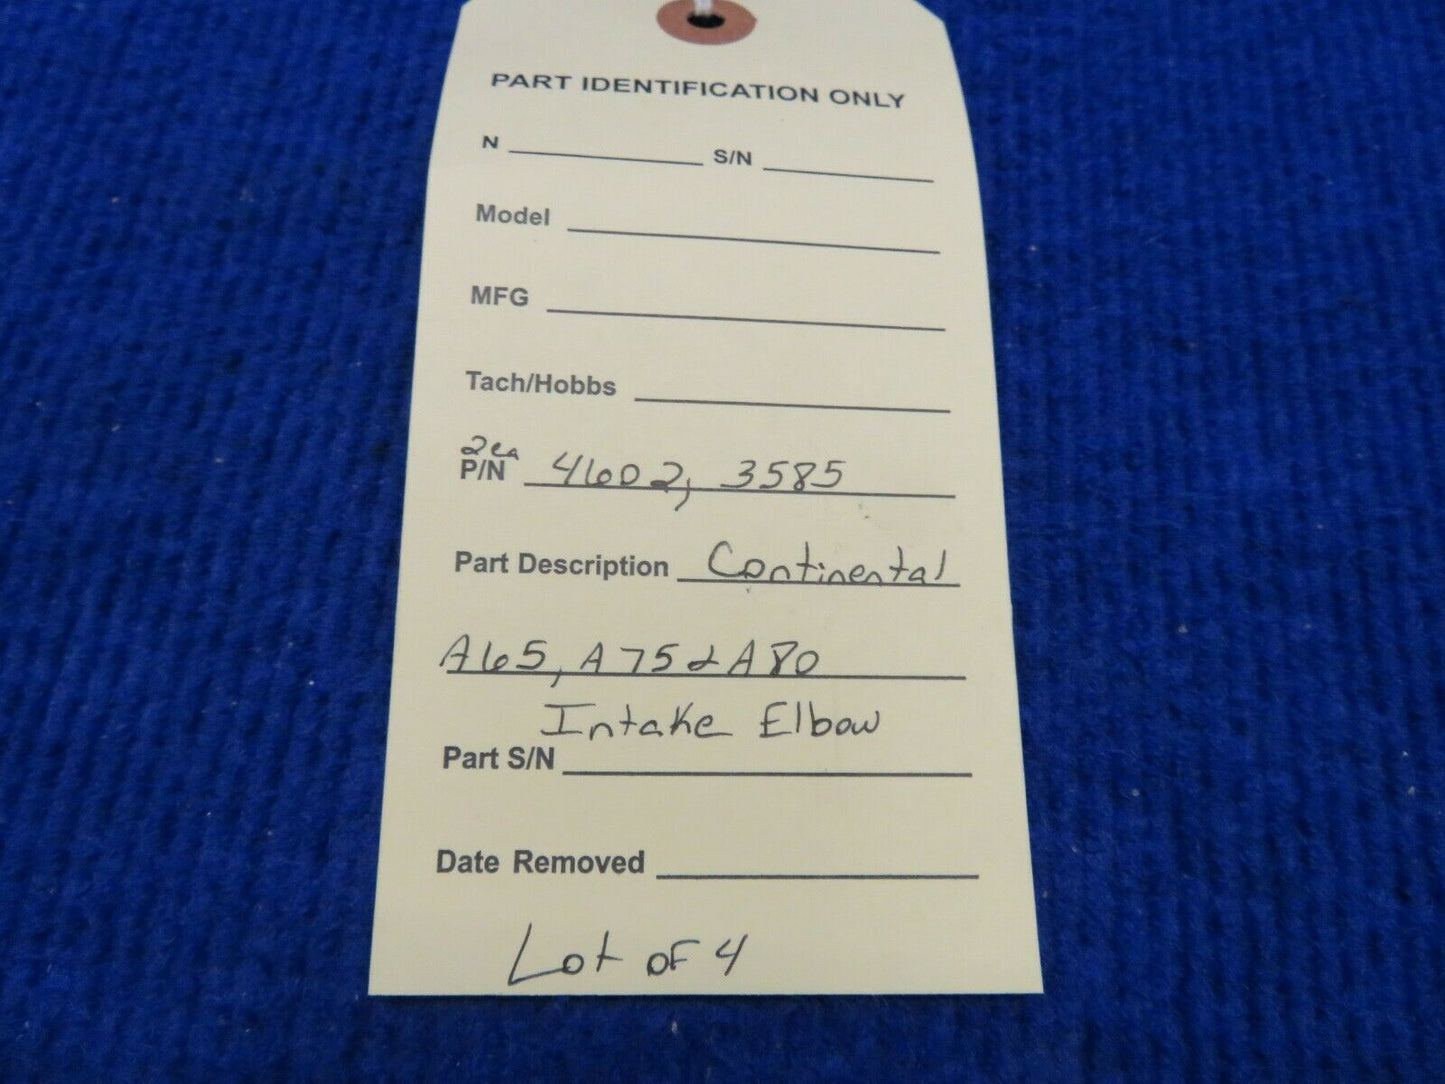 PART IDENTIFICATION ONLY
N S/N
Model
MFG
Tach/Hobbs
2ea
P/N 4602, 3585
Part Description Continental
A65, A75 & A80
Intake Elbow
Part S/N
Date Removed
Lot of 4